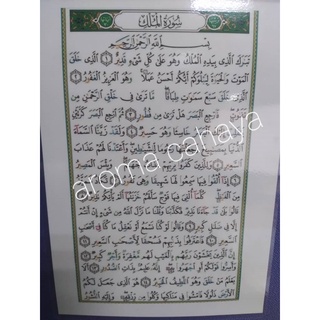 سُورَةُ الْمُلْكِ
بِسْمِ اللَّهِ الرَّحْمَٰنِ الرَّحِيمِ
تَبَارَكَ الَّذِي بِيَدِهِ الْمُلْكُ وَهُوَ عَلَىٰ كُلِّ شَيْءٍ قَدِيرٌ ۝ الَّذِي خَلَقَ
الْمَوْتَ وَالْحَيَاةَ لِيَبْلُوَكُمْ أَيُّكُمْ أَحْسَنُ عَمَلًا وَهُوَ الْعَزِيزُ الْغَفُورُ ۝
الَّذِي خَلَقَ سَبْعَ سَمَاوَاتٍ طِبَاقًا مَا تَرَىٰ فِي خَلْقِ الرَّحْمَٰنِ مِنْ
تَفَاوُتٍ فَارْجِعِ الْبَصَرَ هَلْ تَرَىٰ مِنْ فُطُورٍ ۝ ثُمَّ ارْجِعِ الْبَصَرَ كَرَّتَيْنِ
يَنْقَلِبْ إِلَيْكَ الْبَصَرُ خَاسِئًا وَهُوَ حَسِيرٌ ۝ وَلَقَدْ زَيَّنَّا السَّمَاءَ
الدُّنْيَا بِمَصَابِيحَ وَجَعَلْنَاهَا رُجُومًا لِلشَّيَاطِينِ وَأَعْتَدْنَا لَهُمْ عَذَابَ
السَّعِيرِ ۝ وَلِلَّذِينَ كَفَرُوا بِرَبِّهِمْ عَذَابُ جَهَنَّمَ وَبِئْسَ الْمَصِيرُ ۝
إِذَا أُلْقُوا فِيهَا سَمِعُوا لَهَا شَهِيقًا وَهِيَ تَفُورُ ۝ تَكَادُ تَمَيَّزُ
مِنَ الْغَيْظِ كُلَّمَا أُلْقِيَ فِيهَا فَوْجٌ سَأَلَهُمْ خَزَنَتُهَا أَلَمْ يَأْتِكُمْ نَذِيرٌ ۝
قَالُوا بَلَىٰ قَدْ جَاءَنَا نَذِيرٌ فَكَذَّبْنَا وَقُلْنَا مَا نَزَّلَ اللَّهُ مِنْ شَيْءٍ إِنْ أَنْتُمْ
إِلَّا فِي ضَلَالٍ كَبِيرٍ ۝ وَقَالُوا لَوْ كُنَّا نَسْمَعُ أَوْ نَعْقِلُ مَا كُنَّا فِي أَصْحَابِ
السَّعِيرِ ۝ فَاعْتَرَفُوا بِذَنْبِهِمْ فَسُحْقًا لِأَصْحَابِ السَّعِيرِ ۝
إِنَّ الَّذِينَ يَخْشَوْنَ رَبَّهُمْ بِالْغَيْبِ لَهُمْ مَغْفِرَةٌ وَأَجْرٌ كَبِيرٌ ۝
وَأَسِرُّوا قَوْلَكُمْ أَوِ اجْهَرُوا بِهِ إِنَّهُ عَلِيمٌ بِذَاتِ الصُّدُورِ ۝ أَلَا
يَعْلَمُ مَنْ خَلَقَ وَهُوَ اللَّطِيفُ الْخَبِيرُ ۝ هُوَ الَّذِي جَعَلَ لَكُمُ
الْأَرْضَ ذَلُولًا فَامْشُوا فِي مَنَاكِبِهَا وَكُلُوا مِنْ رِزْقِهِ وَإِلَيْهِ النُّشُورُ
aroma cahaya